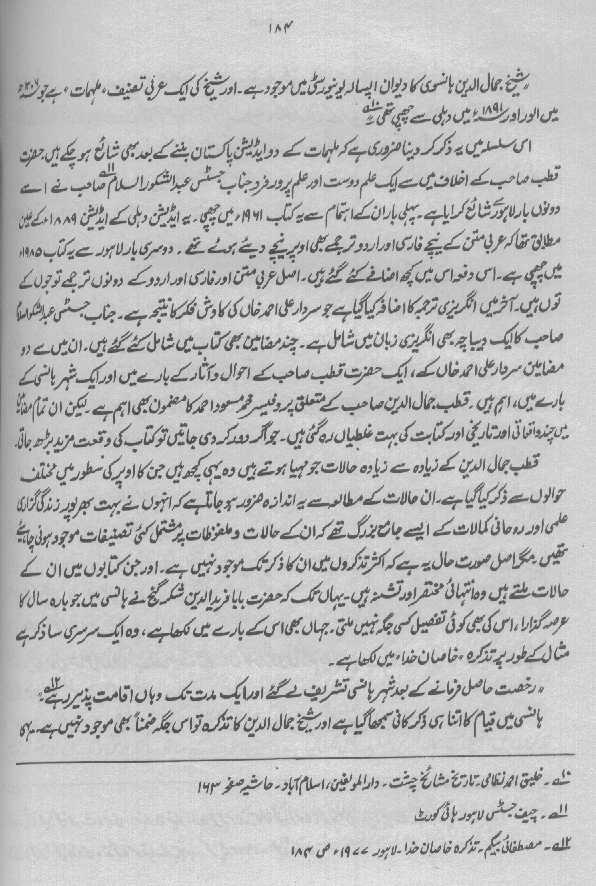 ۱۸۴
"شیخ جمال الدین ہانسوی کا دیوان ایپسالہ یونیورسٹی میں موجود ہے۔ اور شیخ کی ایک عربی تصنیف "ملہمات" ہے جو ۱۳۰۶ھ
میں الور اور ۱۸۹۱ء میں دہلی سے چھپی تھی"۱۰
اس سلسلہ میں یہ ذکر کر دینا ضروری ہے کہ ملہمات کے دو ایڈیشن پاکستان بننے کے بعد بھی شائع ہو چکے ہیں حضرت
قطب صاحب کے اخلاف میں سے ایک علم دوست اور علم پرور فرد جناب جسٹس عبدالشکور السلام۱۱ صاحب نے اسے
دونوں بار لاہور سے شائع کرایا ہے۔ پہلی بار ان کے اہتمام سے یہ کتاب ۱۹۶۱ء میں چھپی۔ یہ ایڈیشن دہلی کے ایڈیشن ۱۸۸۹ء کے عین
مطابق تھا کہ عربی متن کے نیچے فارسی اور اردو ترجمے بھی اوپر نیچے دیئے ہوئے تھے۔ دوسری بار لاہور سے یہ کتاب ۱۹۸۵ء
میں چھپی ہے۔ اس دفعہ اس میں کچھ اضافے کئے گئے ہیں۔ اصل عربی متن اور فارسی اور اردو کے دونوں ترجمے تو جوں کے
توں ہیں۔ آخر میں انگریزی ترجمہ کا اضافہ کیا گیا ہے جو سردار علی احمد خاں کی کاوش فکر کا نتیجہ ہے۔ جناب جسٹس عبدالشکور السلام
صاحب کا ایک دیباچہ بھی انگریزی زبان میں شامل ہے۔ چند مضامین بھی کتاب میں شامل کئے گئے ہیں۔ ان میں سے دو
مضامین سردار علی احمد خاں کے، ایک حضرت قطب صاحب کے احوال و آثار کے بارے میں اور ایک شہر ہانسی کے
بارے میں، اہم ہیں۔ قطب جمال الدین صاحب کے متعلق پروفیسر محمد مسعود احمد کا مضمون بھی اہم ہے۔ لیکن ان تمام مضامین
میں چند واقعاتی اور تاریخی اور کتابت کی بہت غلطیاں رہ گئی ہیں۔ جو اگر دور کر دی جاتیں تو کتاب کی وقعت مزید بڑھ جاتی۔
قطب جمال الدین کے زیادہ سے زیادہ حالات جو مہیا ہوتے ہیں وہ یہی کچھ ہیں جن کا اوپر کی سطور میں مختلف
حوالوں سے ذکر کیا گیا ہے۔ ان حالات کے مطالعہ سے یہ اندازہ ضرور ہو جاتا ہے کہ انہوں نے بہت بھرپور زندگی گزاری
علمی اور روحانی کمالات کے ایسے جامع بزرگ تھے کہ ان کے حالات و ملفوظات پر مشتمل کئی تصنیفات موجود ہونی چاہئے
تھیں۔ مگر اصل صورت حال یہ ہے کہ اکثر تذکروں میں ان کا ذکر تک موجود نہیں ہے۔ اور جن کتابوں میں ان کے
حالات ملتے ہیں وہ انتہائی مختصر اور تشنہ ہیں۔ یہاں تک کہ حضرت بابا فرید الدین شکر گنج نے ہانسی میں جو بارہ سال کا
عرصہ گذارا، اس کی بھی کوئی تفصیل کسی جگہ نہیں ملتی۔ جہاں بھی اس کے بارے میں لکھا ہے، وہ ایک سرسری سا ذکر ہے
مثال کے طور پر تذکرہ "خاصان خدا" میں لکھا ہے۔
"رخصت حاصل فرمانے کے بعد شہر ہانسی تشریف لے گئے اور ایک مدت تک وہاں اقامت پذیر رہے"۱۲
ہانسی میں قیام کا اتنا ہی ذکر کافی سمجھا گیا ہے اور شیخ جمال الدین کا تذکرہ تو اس جگہ ضمناً بھی موجود نہیں ہے۔ یہی
۱۰۔ خلیق احمد نظامی۔ تاریخ مشائخ چشت۔ دارالمولفین، اسلام آباد۔ حاشیہ صفحہ ۱۶۳
۱۱۔ چیف جسٹس لاہور ہائی کورٹ
۱۲۔ مصطفائی بیگم۔ تذکرہ خاصان خدا۔ لاہور ۱۹۷۷ء ص ۱۸۴